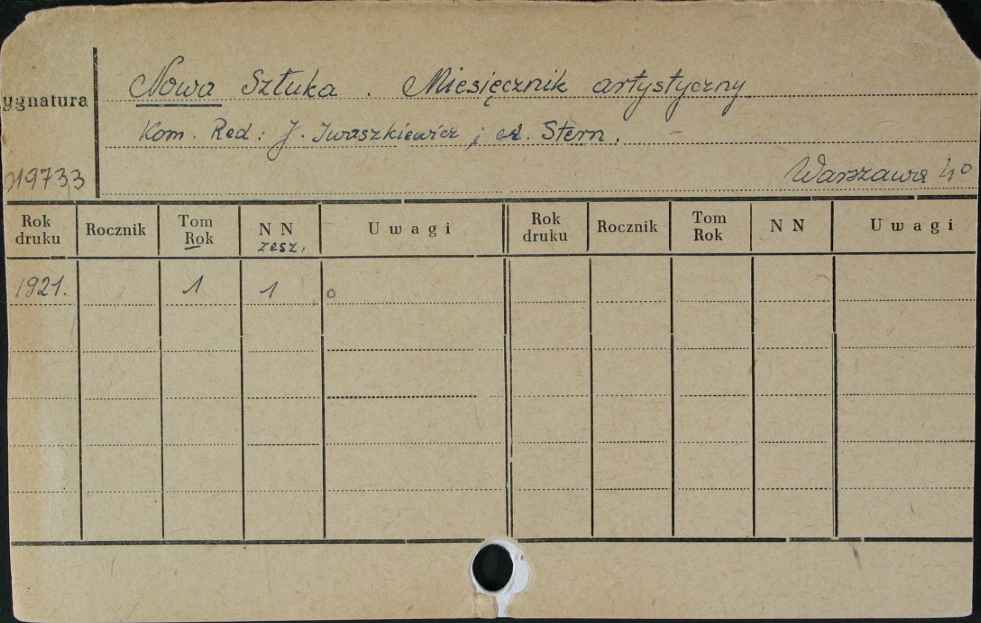 Nowa Sztuka. Miesięcznik artystyczny
ygnatura
Kom. Red: J. Iwaszkiewicz; A. Stern.
19733
Warszawa 4°
Rok druku Rocznik Tom Rok N N zesz. Uwagi Rok druku Rocznik Tom Rok N N Uwagi
1921. 1 1 o